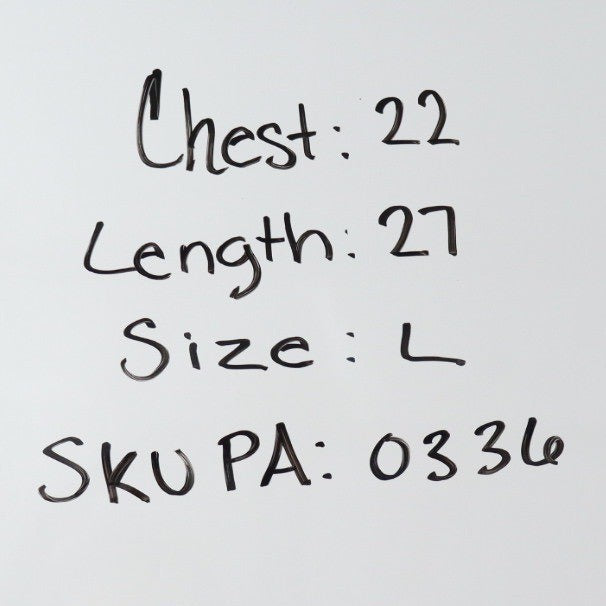 Chest: 22
Length: 27
Size: L
SKU PA: 0336